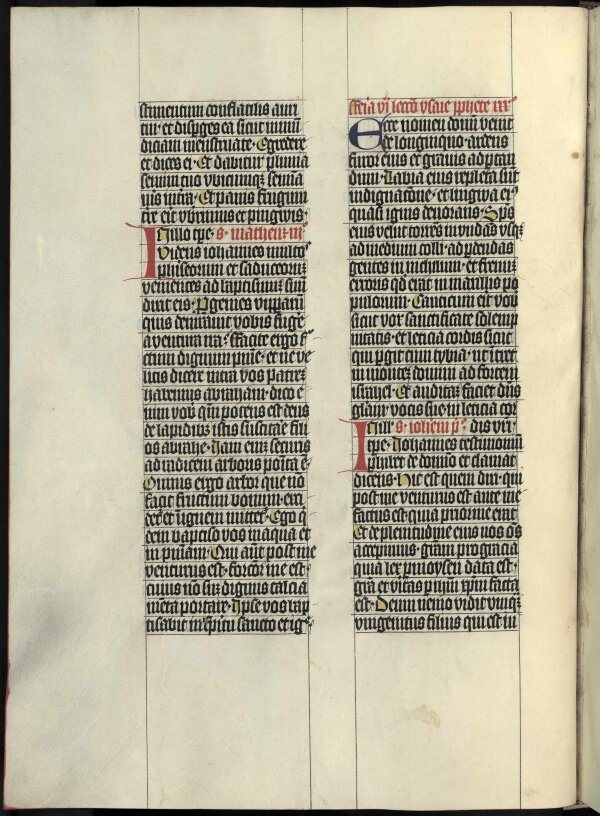 stimentum conflatilis auri
tui· et disp̱ges ea sicut inmū
diciam menstruate· Egredere
et dices ei· Et dabitur pluuia
semini tuo vbicumqꝫ semīa
uis ī terra· Et panis frugum
t̄re erit vbrimus et pingwis·
In illo tp̄e· s· matheū·iii°
Videns iohannes multos
phiseorum et saduceorum
venientes ad baptismum suū
dixit eis· Progenies vipparū
quis demrauit vobis fuge
a ventura ira· ffacite ergo fr̄
ctum dignum pn̄ie· et ne ve
litis dicere intra vos patrē
habemus abraham· dico e
nim vob̄ qm̄ potens est deus
de lapidibus istis suscitare fili
os abrahe· Iam enī securis
ad radicem arboris posita ē·
Omnis ergo arbor que nō
facit fructum bonum· exci
det᷑ et in ignem mittet᷑· Ego q̇
dem baptiso vos in aqua et
in pn̄iam· Qui aūt post me
venturus est· forcior me est·
cuius nō suꝫ dignus calcia
mēta portare· Ipse vos bap
tisabit in sp̄itu sancto et igᵉ·
ffeia vi lectō ysaie pphete xxx°
Ecce nomen dom̄i venit
de longinquo· ardens
furor eius et grauis ad portan
dum· Labia eius repleta sūt
indignacōne· et lingwa eiꝰ
quasi ignis deuorans· Sp̄s
eius velut torrēs inūdans vsqꝫ
ad medium colli· ad pdendas
gentes in nichilum· et frenuꝫ
erroris qd̄ erat in maxillis po
pulorum· Canticum erit vob̄
sicut vox sanctificate solemp
nitatis· et leticia cordis sicut
qui pgit cum tybia· ut intret
in montem domini ad fortem
israhel· Et auditaꝫ faciet dn̄s
gl̄iam vocis sue in leticia cor
In ill̄· s· ioh̄em p°· dis vr̄i·
tp̄e· Iohannes testimoniū
phibet de domīo et clamat
dicens· Hic est quem dixi· qui
post me venturus est ante me
factus est· quia prior me erat·
Et de plenitudine eius nos om̄s
accepimus· gr̄am pro gracia
quia lex p moysen data est·
gr̄a et v̄itas p ih̄m xp̄m facta
est· Deum nemo vidit vnqꝫ
vnigenitus filius qui est in